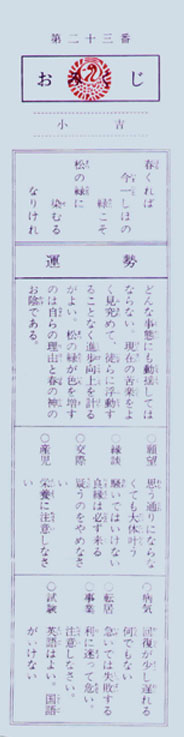 第二十三番
おみくじ
小吉
春くれば
今一しほの
緑こそ
松の緑に
染むる
なりけれ
運勢
どんな事態にも動揺しては
ならない。現在の苦楽をよ
く見究めて、徒らに浮動す
ることなく進歩向上を計る
がよい。松の緑が色を増す
のは自らの理由と春の神の
お陰である。
○願望 思う通りにならな
くても大体叶う
○縁談 騒いではいけない
良縁は必ず来る
○交際 疑うのをやめなさ
い
○産児 栄養に注意しなさ
い
○病気 回復が少し遅れる
何でもない
○転居 急いでは失敗する
○事業 利に迷って危い。
注意しなさい。
○試験 英語はよい。国語
がいけない